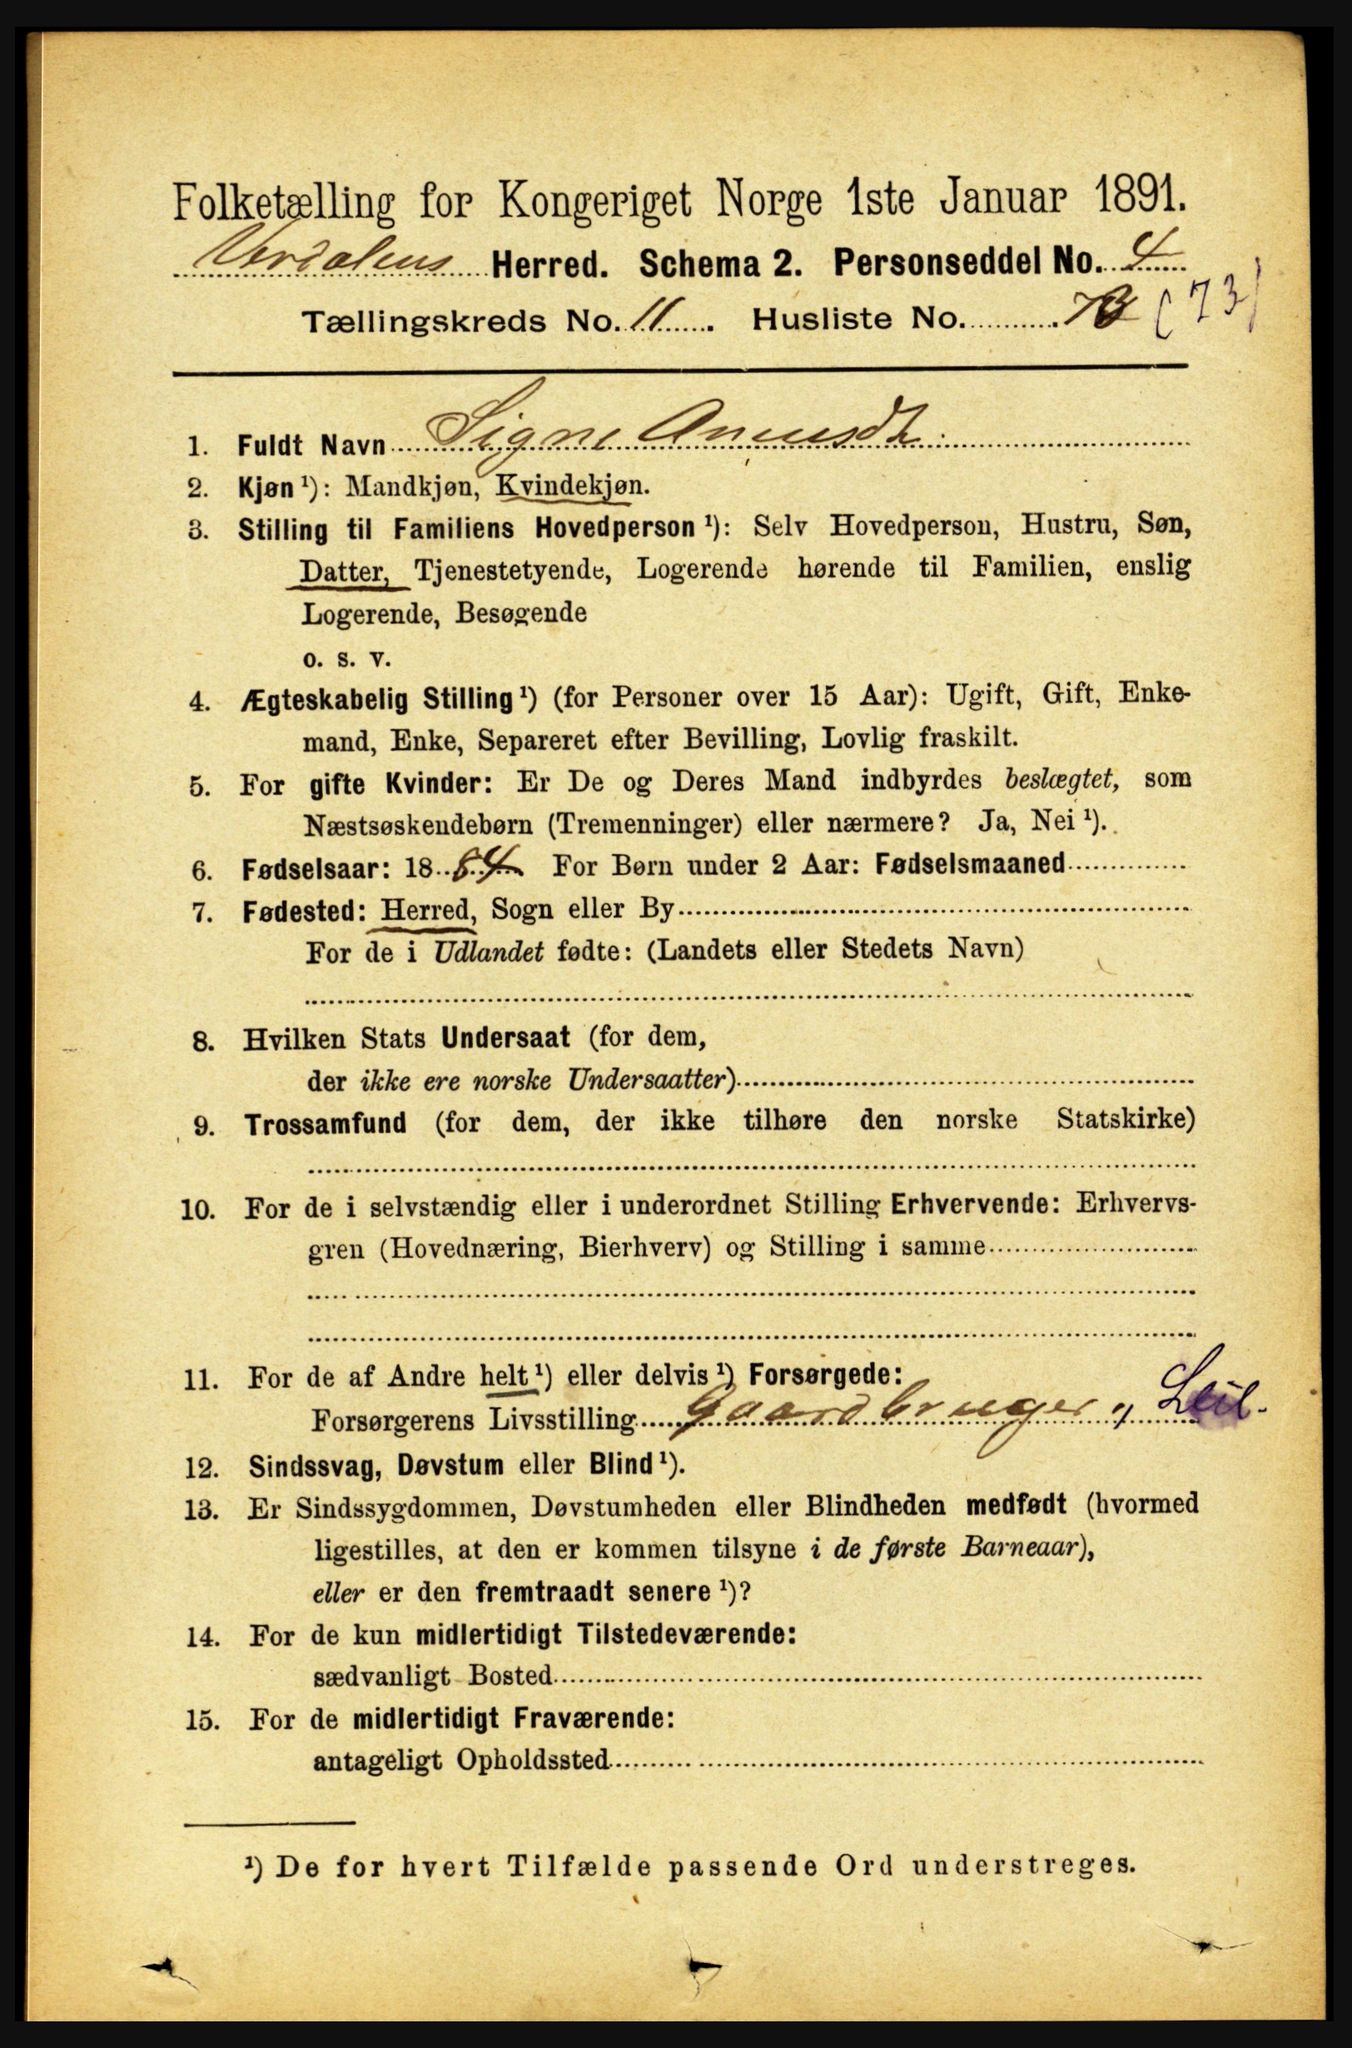 Folketælling for Kongeriget Norge 1ste Januar 1891.
Verdalens Herred. Schema 2. Personseddel No. 4
Tællingskreds No. 11. Husliste No. 73 (73)
1. Fuldt Navn Signe
2. Kjøn ¹): Mandkjøn, Kvindekjøn.
3. Stilling til Familiens Hovedperson ¹): Selv Hovedperson, Hustru, Søn,
Datter, Tjenestetyende, Logerende hørende til Familien, enslig
Logerende, Besøgende
o. s. v.
4. Ægteskabelig Stilling ¹) (for Personer over 15 Aar): Ugift, Gift, Enke-
mand, Enke, Separeret efter Bevilling, Lovlig fraskilt.
5. For gifte Kvinder: Er De og Deres Mand indbyrdes beslægtet, som
Næstsøskendebørn (Tremenninger) eller nærmere? Ja, Nei ¹).
6. Fødselsaar: 1884 For Børn under 2 Aar: Fødselsmaaned
7. Fødested: Herred, Sogn eller By
For de i Udlandet fødte: (Landets eller Stedets Navn)
8. Hvilken Stats Undersaat (for dem,
der ikke ere norske Undersaatter)
9. Trossamfund (for dem, der ikke tilhøre den norske Statskirke)
10. For de i selvstændig eller i underordnet Stilling Erhvervende: Erhvervs-
gren (Hovednæring, Bierhverv) og Stilling i samme
11. For de af Andre helt ¹) eller delvis ¹) Forsørgede:
Forsørgerens Livsstilling Gaardbruger, Leil.
12. Sindssvag, Døvstum eller Blind ¹).
13. Er Sindssygdommen, Døvstumheden eller Blindheden medfødt (hvormed
ligestilles, at den er kommen tilsyne i de første Barneaar),
eller er den fremtraadt senere ¹)?
14. For de kun midlertidigt Tilstedeværende:
sædvanligt Bosted
15. For de midlertidigt Fraværende:
antageligt Opholdssted
¹) De for hvert Tilfælde passende Ord understreges.